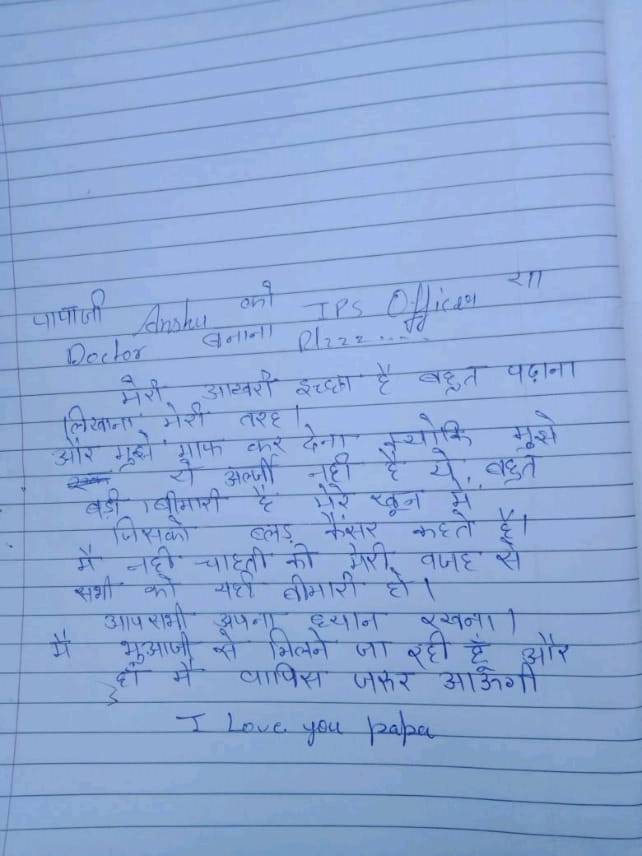 पापाजी Anshu को IPS Officer या
Doctor बनाना Plzzz.....
मेरी आखरी इच्छा है बहुत पढ़ाना
लिखाना मेरी तरह।
और मुझे माफ कर देना क्योकि मुझे
ये अलर्जी नही है ये बहुत
बड़ी बीमारी है मेरे खून में
जिसको ब्लड कैंसर कहते है।
मै नही चाहती की मेरी वजह से
सभी को यही बीमारी हो।
आप सभी अपना ध्यान रखना।
मै भुआजी से मिलने जा रही हूँ और
हाँ मै वापिस जरूर आऊँगी
I Love you papa